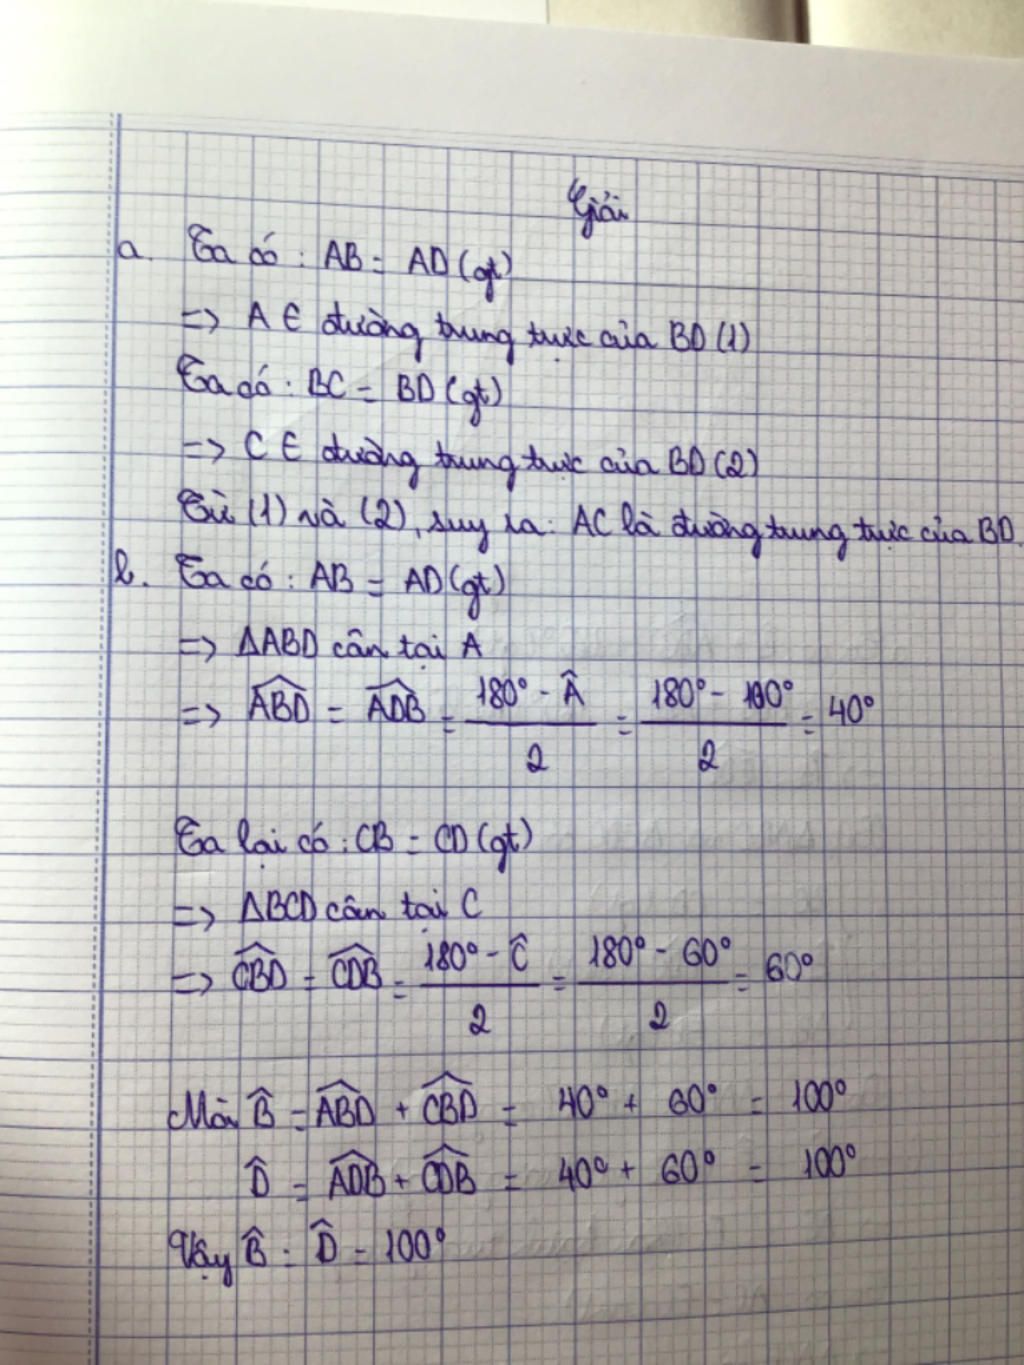 Giải
a. Ta có : AB = AD (gt)
=> A ∈ đường trung trực của BD (1)
Ta có : BC = BD (gt)
=> C ∈ đường trung trực của BD (2)
Từ (1) và (2), suy ra : AC là đường trung trực của BD.
b. Ta có : AB = AD (gt)
=> ΔABD cân tại A
=> \widehat{ABD} = \widehat{ADB} = \frac{180° - Â}{2} = \frac{180° - 100°}{2} = 40°
Ta lại có : CB = CD (gt)
=> ΔBCD cân tại C
=> \widehat{CBD} = \widehat{CDB} = \frac{180° - Ĉ}{2} = \frac{180° - 60°}{2} = 60°
Mà \widehat{B} = \widehat{ABD} + \widehat{CBD} = 40° + 60° = 100°
\widehat{D} = \widehat{ADB} + \widehat{CDB} = 40° + 60° = 100°
Vậy \widehat{B} = \widehat{D} = 100°